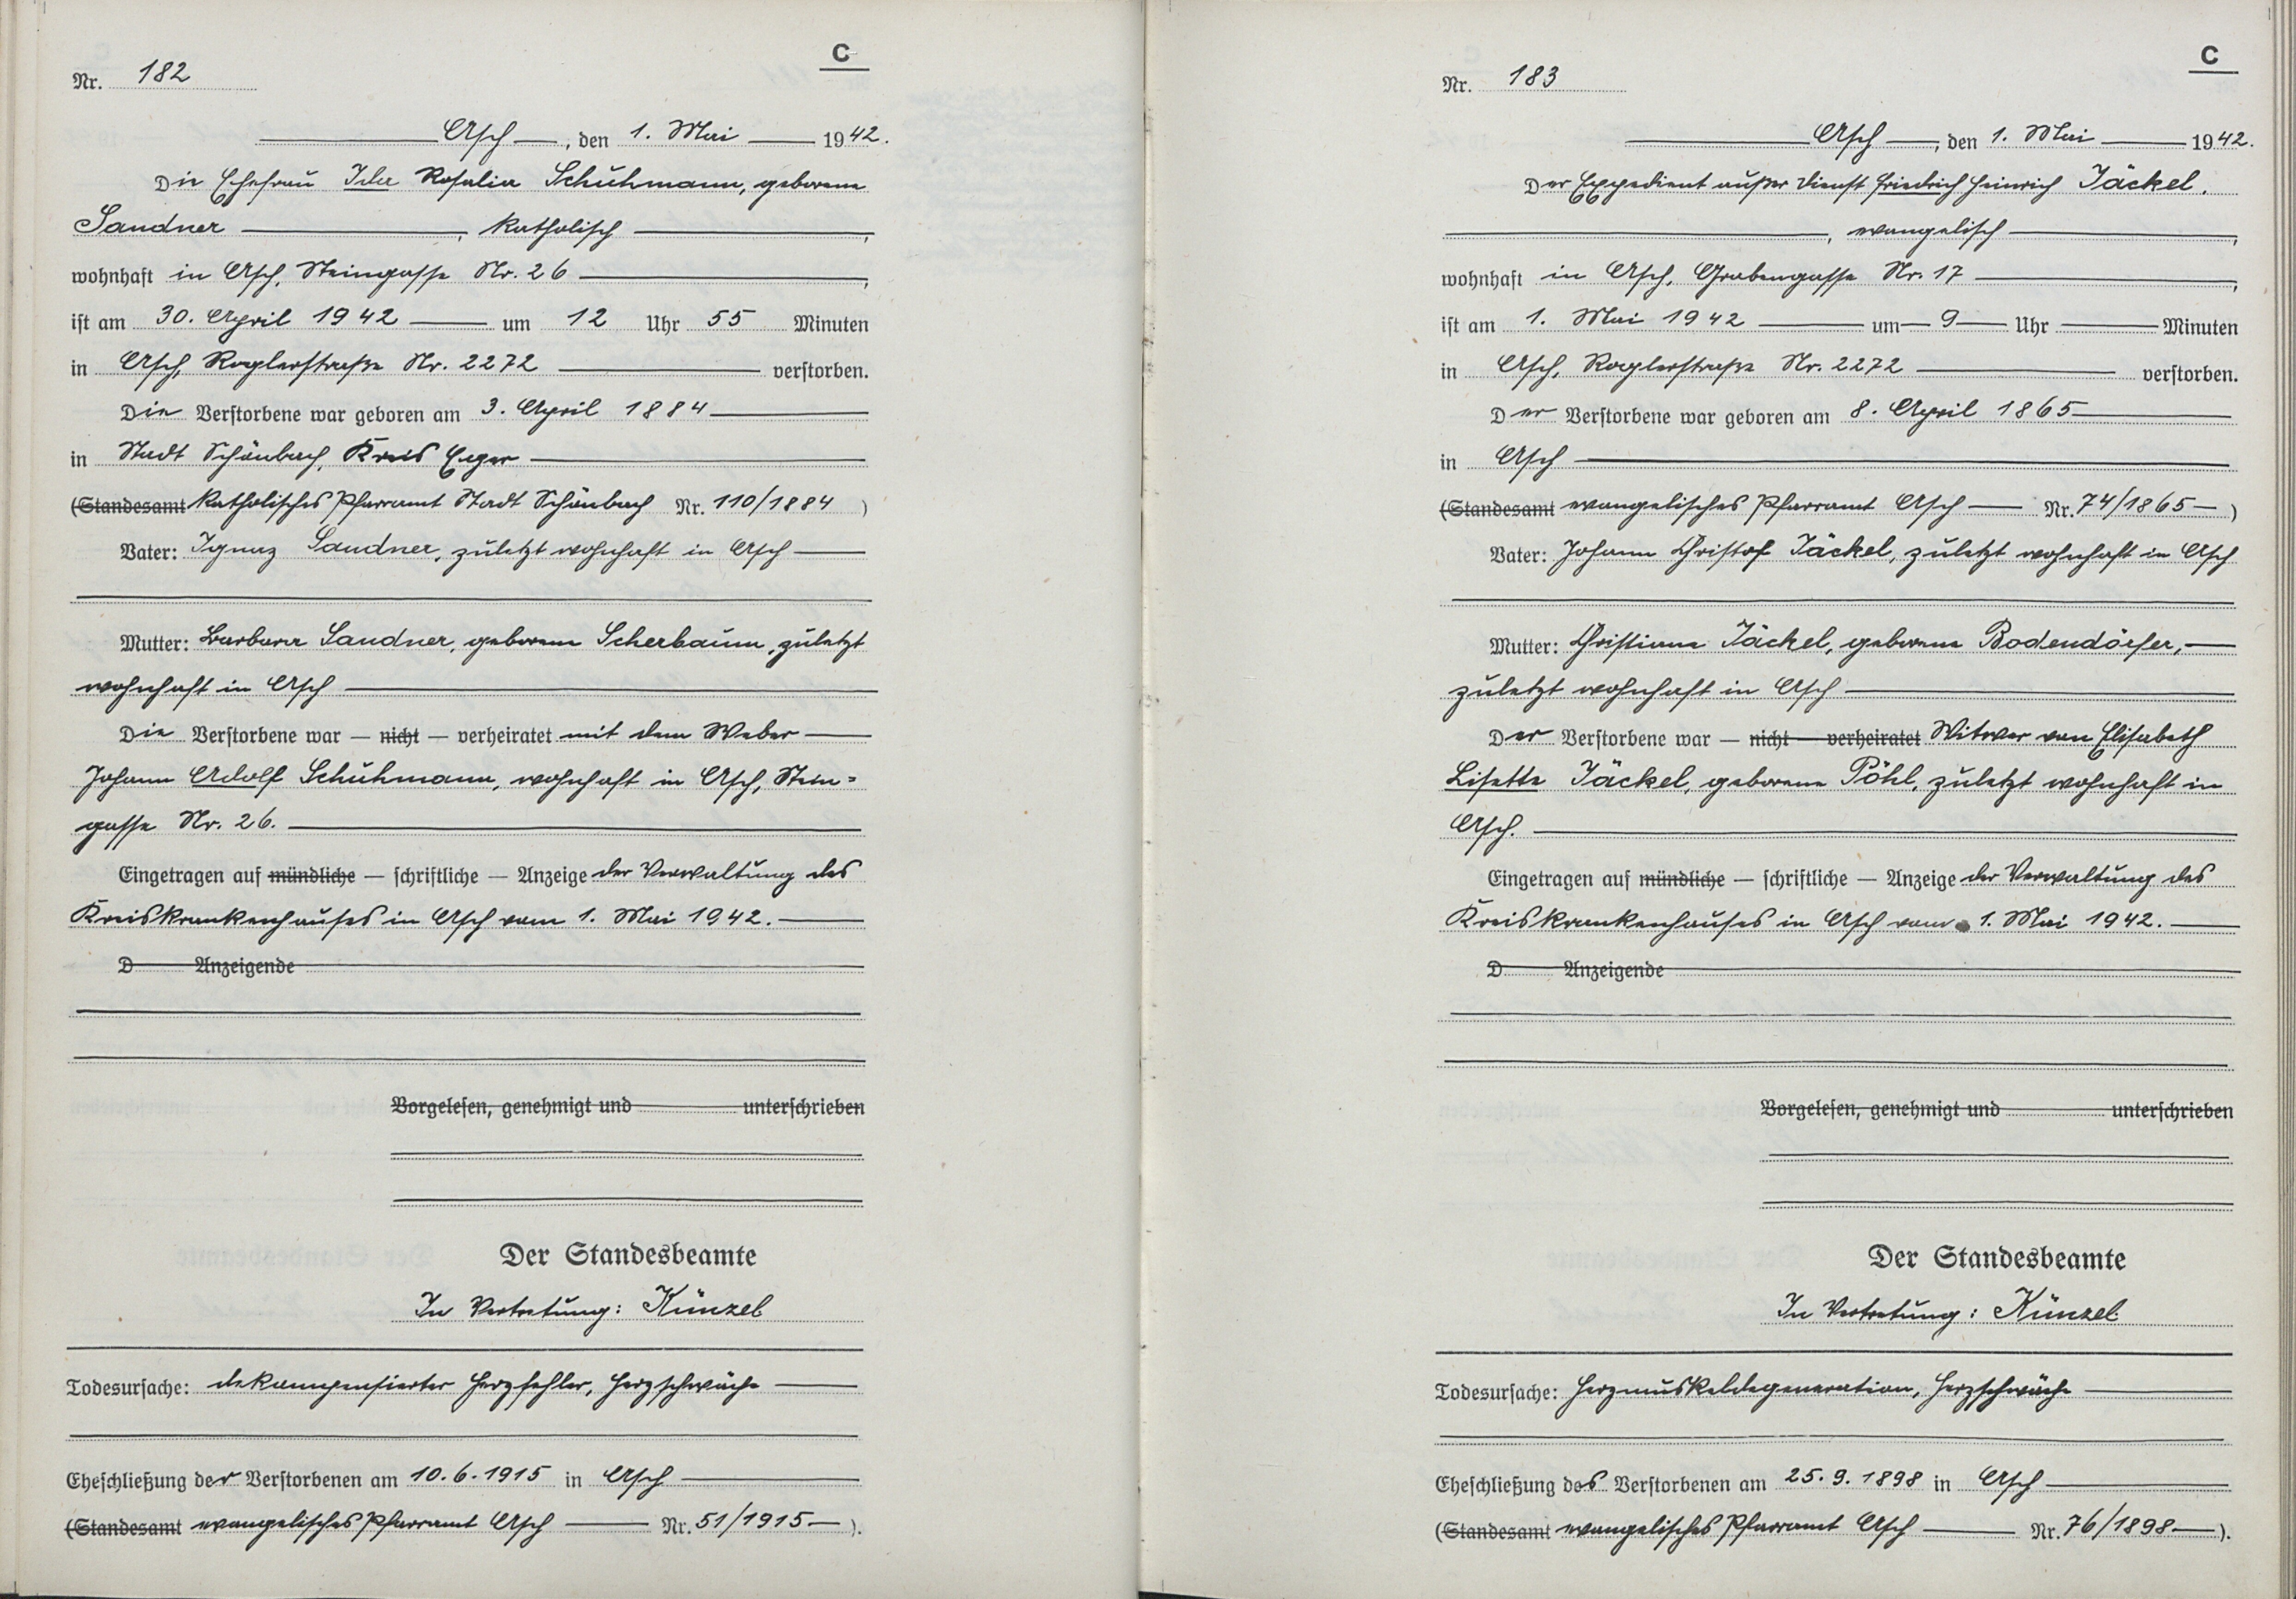 C
Nr. 182
Asch, den 1. Mai 1942.
Die Ehefrau Ida Rosalia Schuhmann, geborene
Sandner, katholisch,
wohnhaft in Asch, Steingasse Nr. 26,
ist am 30. April 1942 um 12 Uhr 55 Minuten
in Asch, Roglerstraße Nr. 2272 verstorben.
Die Verstorbene war geboren am 3. April 1884
in Stadt Schönbach, Kreis Eger
(Standesamt katholisches Pfarramt Stadt Schönbach Nr. 110/1884)
Vater: Ignaz Sandner, zuletzt wohnhaft in Asch
Mutter: Barbara Sandner, geborene Scherbaum, zuletzt
wohnhaft in Asch
Die Verstorbene war — nicht — verheiratet mit dem Weber
Johann Adolf Schuhmann, wohnhaft in Asch, Stein=
gasse Nr. 26.
Eingetragen auf mündliche — schriftliche — Anzeige der Verwaltung des
Kreiskrankenhauses in Asch vom 1. Mai 1942.
D Anzeigende
Vorgelesen, genehmigt und unterschrieben
Der Standesbeamte
In Vertretung: Künzel
Todesursache: dekompensierter Herzfehler, Herzschwäche
Eheschließung der Verstorbenen am 10.6.1915 in Asch
(Standesamt evangelisches Pfarramt Asch Nr. 51/1915).
C
Nr. 183
Asch, den 1. Mai 1942.
Der Expedient außer Dienst Friedrich Heinrich Jäckel,
, evangelisch,
wohnhaft in Asch, Grabengasse Nr. 17,
ist am 1. Mai 1942 um 9 Uhr Minuten
in Asch, Roglerstraße Nr. 2272 verstorben.
Der Verstorbene war geboren am 8. April 1865
in Asch
(Standesamt evangelisches Pfarramt Asch Nr. 74/1865)
Vater: Johann Christof Jäckel, zuletzt wohnhaft in Asch
Mutter: Christiana Jäckel, geborene Bodendörfer,
zuletzt wohnhaft in Asch
Der Verstorbene war — nicht — verheiratet Witwer von Elisabeth
Lisette Jäckel, geborene Pöhl, zuletzt wohnhaft in
Asch.
Eingetragen auf mündliche — schriftliche — Anzeige der Verwaltung des
Kreiskrankenhauses in Asch vom 1. Mai 1942.
D Anzeigende
Vorgelesen, genehmigt und unterschrieben
Der Standesbeamte
In Vertretung: Künzel
Todesursache: Herzmuskeldegeneration, Herzschwäche
Eheschließung des Verstorbenen am 25.9.1898 in Asch
(Standesamt evangelisches Pfarramt Asch Nr. 76/1898).